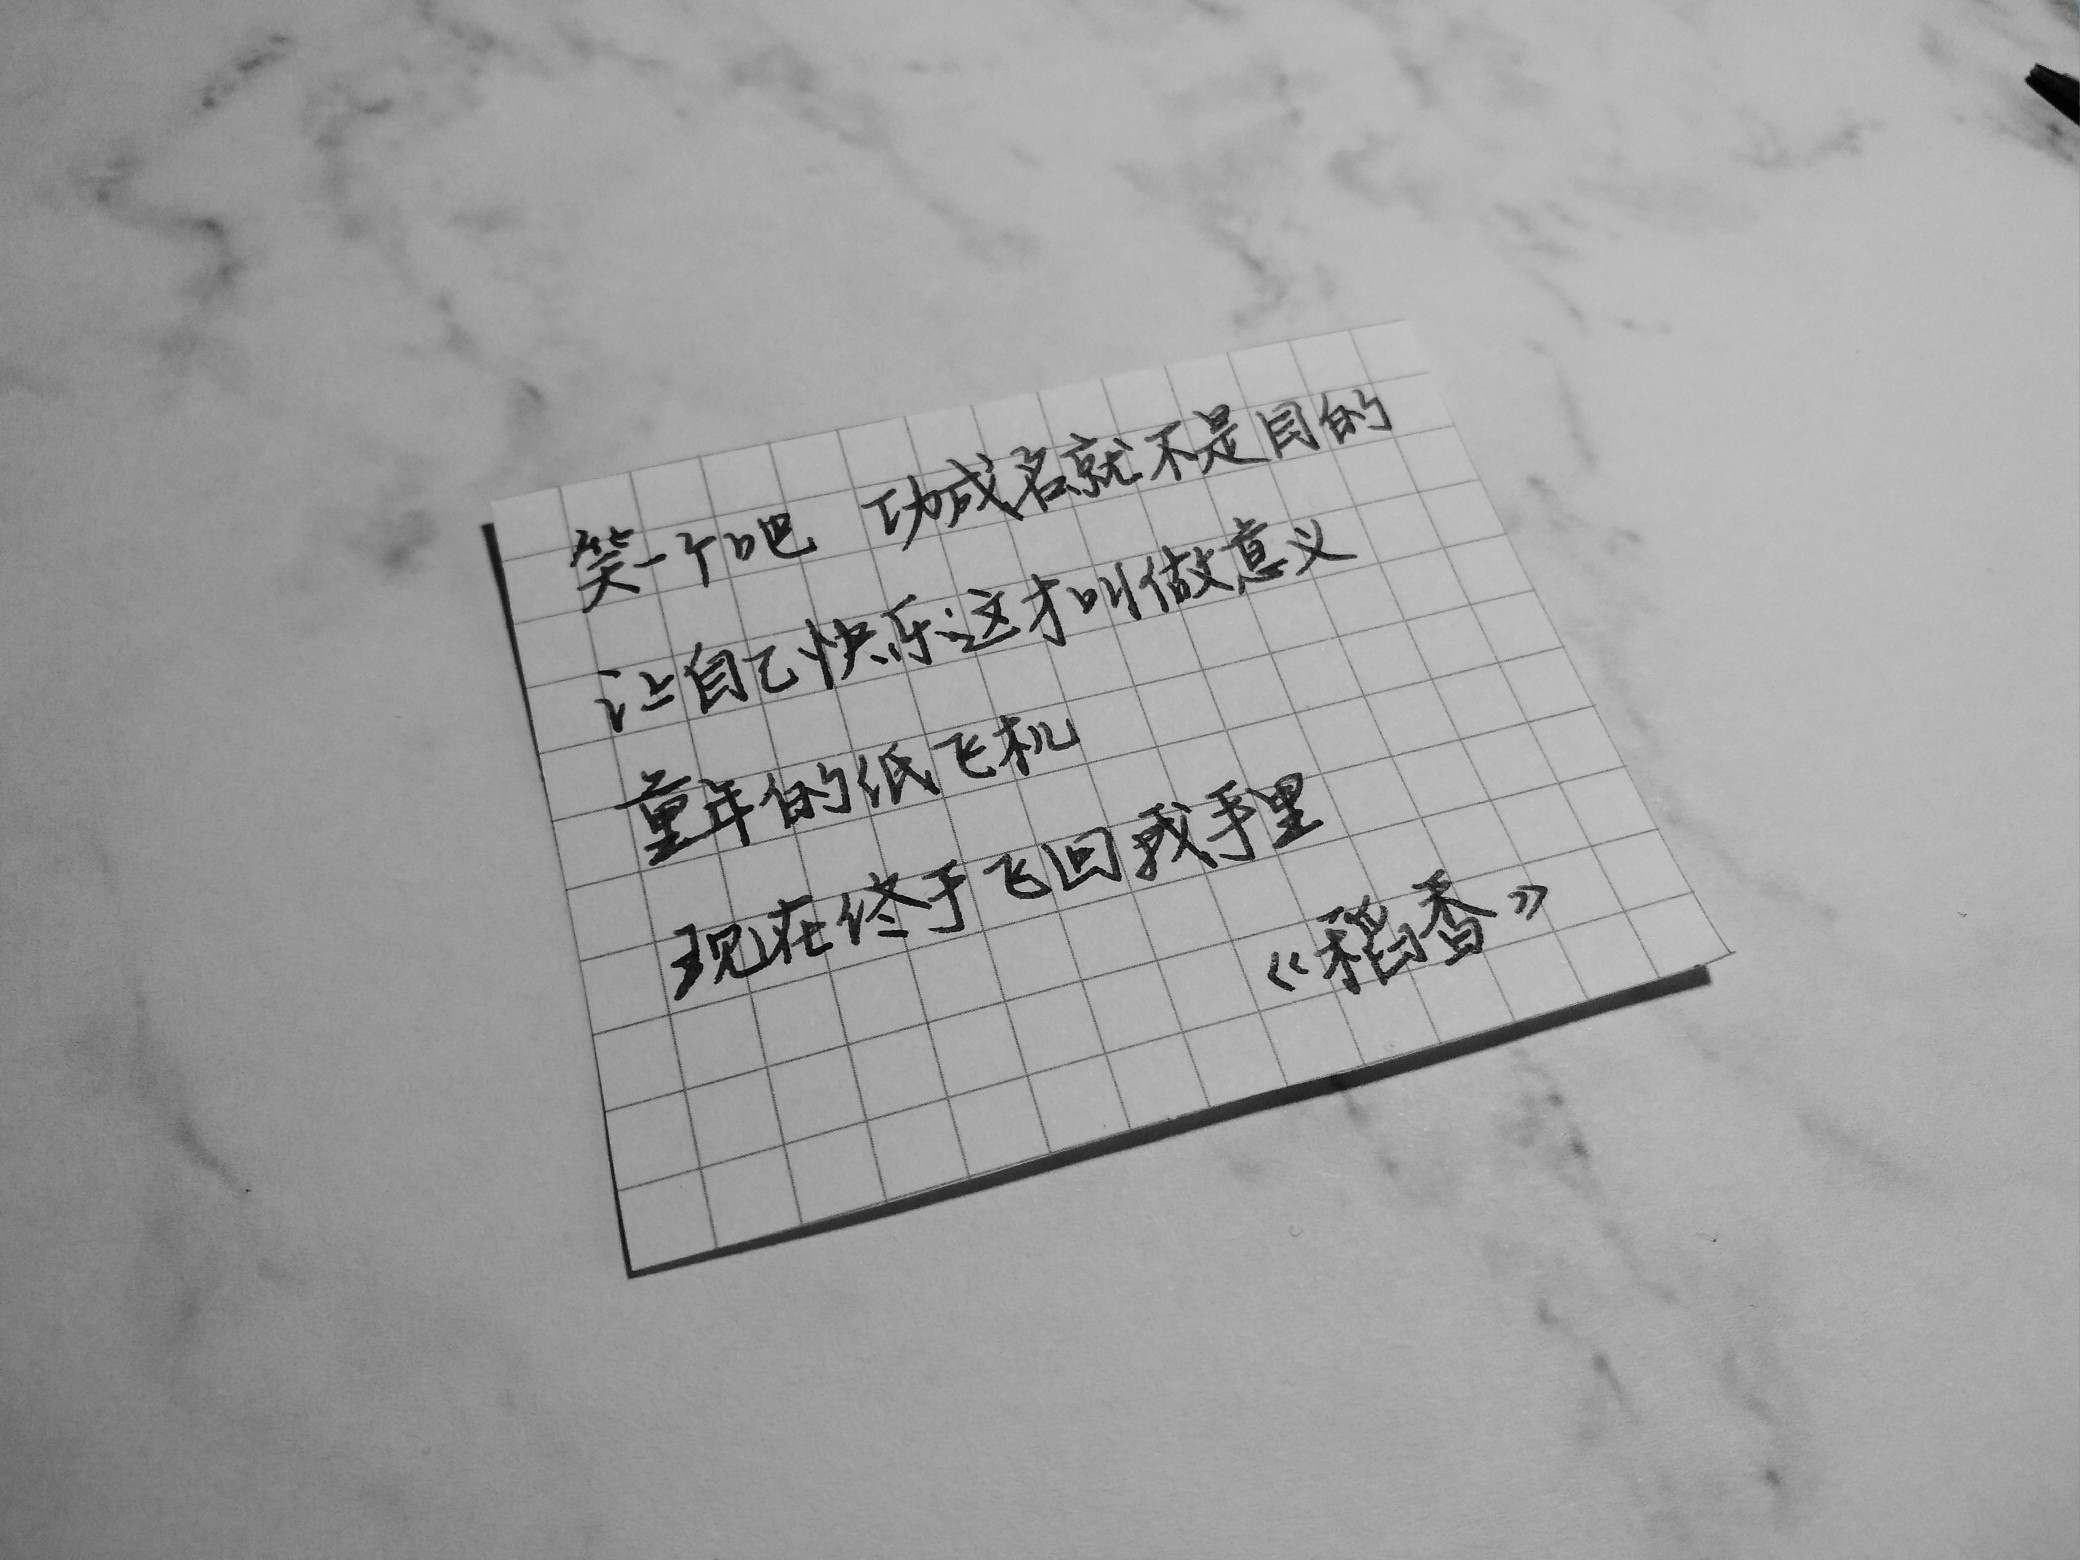 笑一个吧 功成名就不是目的
让自己快乐这才叫做意义
童年的纸飞机
现在终于飞回我手里
《稻香》